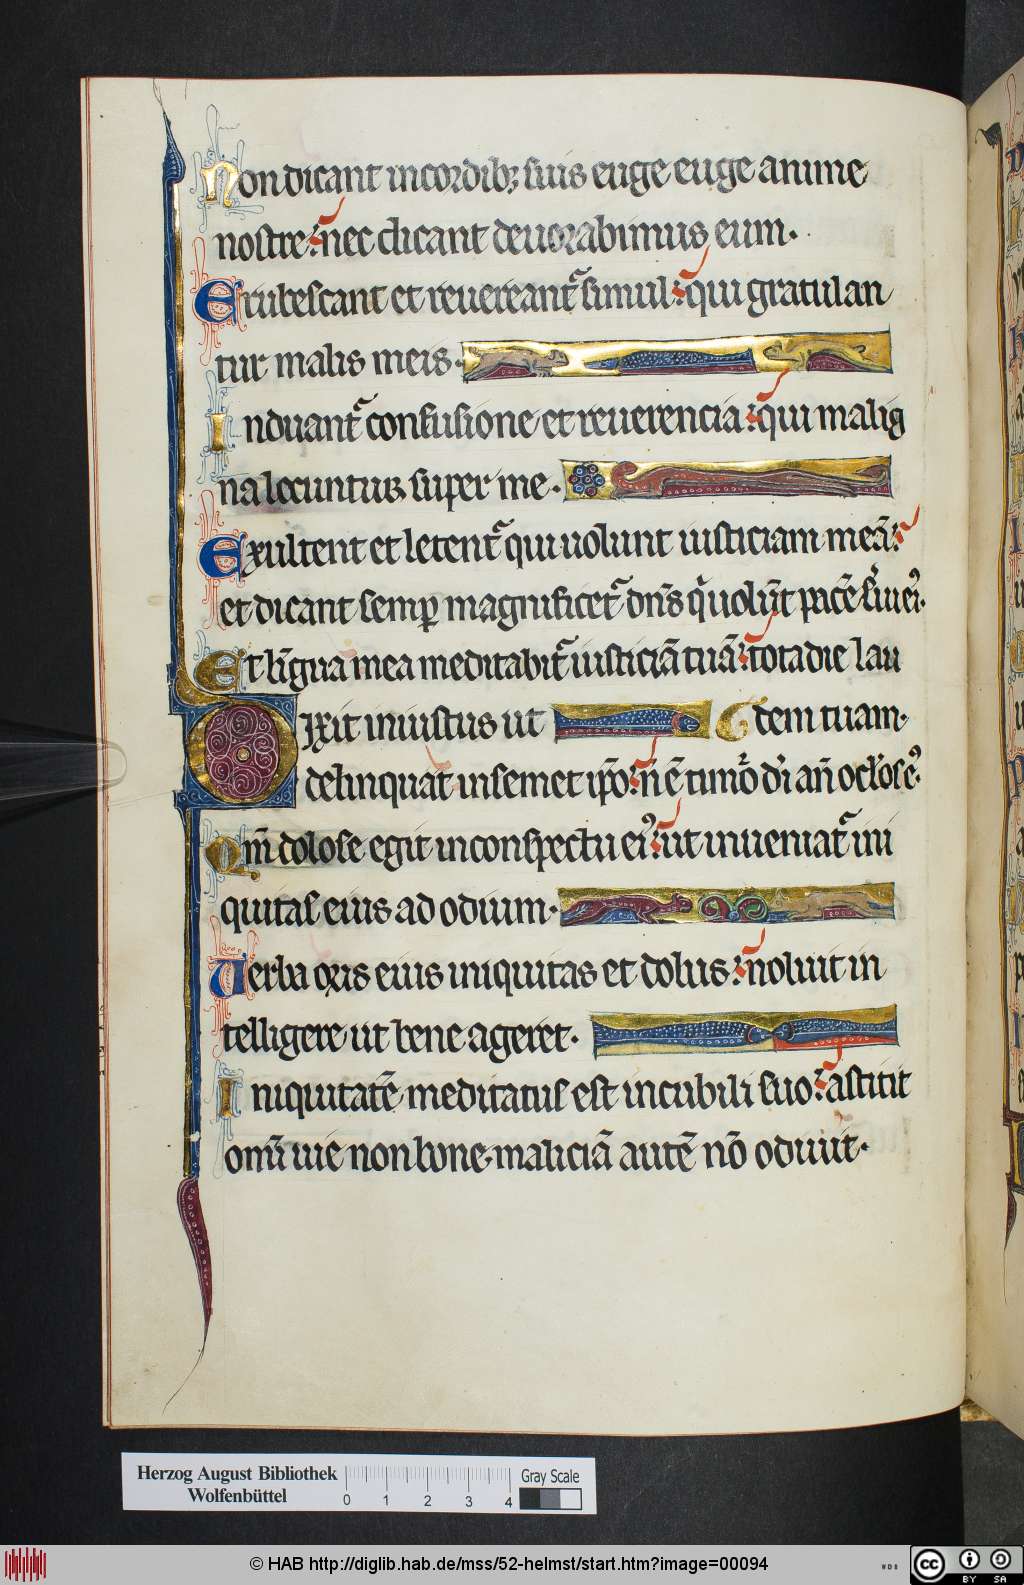 Non dicant in cordibꝫ suis euge euge anime
nostre: nec dicant deuorabimus eum.
Erubescant et reuereant᷑ simul: qui gratulan
tur malis meis.
Induant᷑ confusione et reuerencia: qui malig
na locuntur super me.
Exultent et letent᷑ qui uolunt iusticiam meā:
et dicant semꝑ magnificet᷑ dn̄s q̇ uolūt pacē ẜui eiꝰ.
Et lingua mea meditabit᷑ iusticiā tuā: tota die lau
Dixit iniustus ut dem tuam.
delinquat in semet ip̄o: n̄ ē timor̄ dī an̄ ocl̓os eꝰ.
Qm̄ dolose egit in conspectu eiꝰ: ut inueniat᷑ ini
quitas eius ad odium.
Uerba oris eius iniquitas et dolus: noluit in
telligere ut bene ageret.
Iniquitatē meditatus est in cubili suo: astitit
omī uie non bone. maliciā autē nō odiuit.
Herzog August Bibliothek
Wolfenbüttel
0 1 2 3 4
Gray Scale
© HAB http://diglib.hab.de/mss/52-helmst/start.htm?image=00094
WDB
cc BY SA